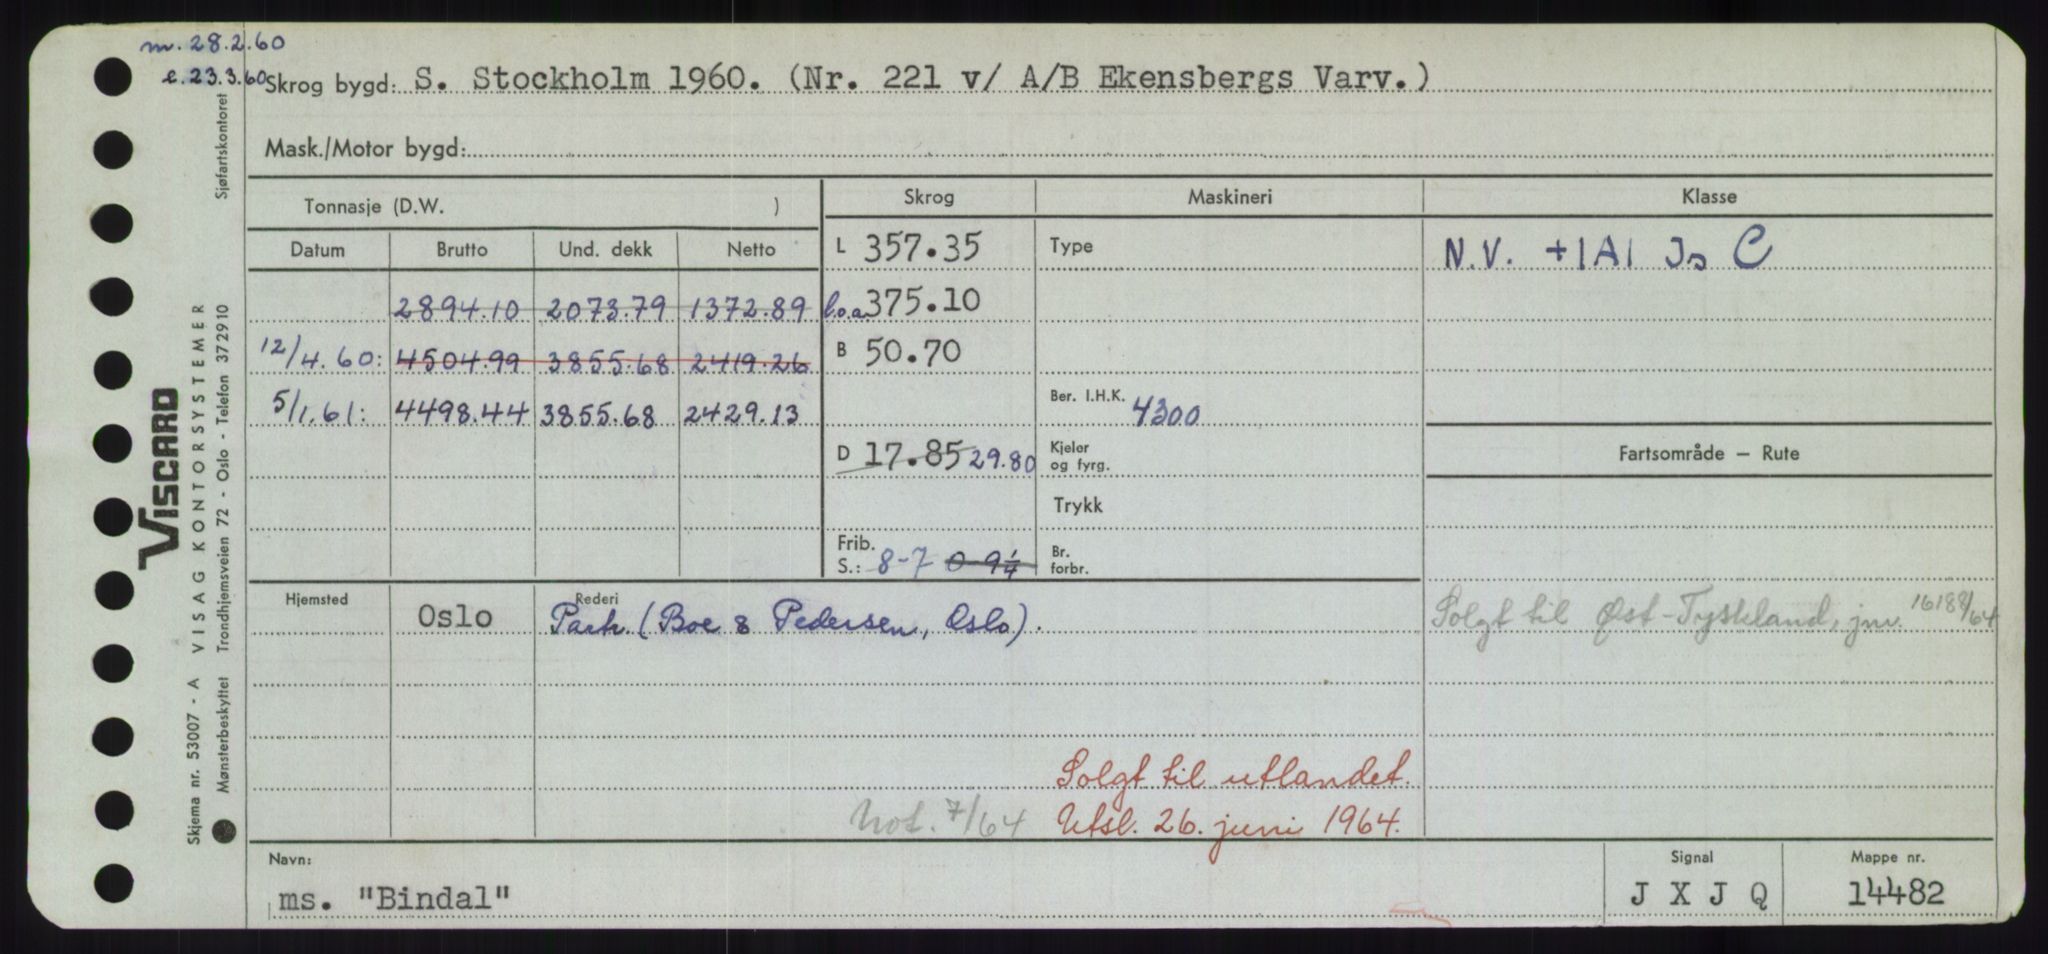 m. 28.2.60
e. 23.3.60
Skrog bygd: S. Stockholm 1960. (Nr. 221 v/ A/B Ekensbergs Varv.)
Mask./Motor bygd:
Tonnasje (D.W. ) Skrog Maskineri Klasse
Datum Brutto Und. dekk Netto L 357.35 Type N.V. +1A1 Is C
2894.10 2073.79 1372.89 l.o.a. 375.10
12/4.60: 4504.99 3855.68 2419.26 B 50.70
5/1.61: 4498.44 3855.68 2429.13 Ber. I.H.K. 4300
D 17.85 29.80 Kjeler og fyrg. Fartsområde — Rute
Trykk
Frib. S.: 8-7 0-9¼ Br. forbr.
Hjemsted Oslo Rederi Partr. (Boe & Pedersen, Oslo). Solgt til Øst-Tyskland, jnr. 16188/64
Solgt til utlandet.
Not. 7/64 Utsl. 26. juni 1964.
Navn: Signal Mappe nr.
ms. "Bindal" J X J Q 14482
VISCARD
Skjema nr. 53007 - A VISAG KONTORSYSTEMER
Mønsterbeskyttet Trondhjemsveien 72 - Oslo - Telefon 372910
Sjøfartskontoret